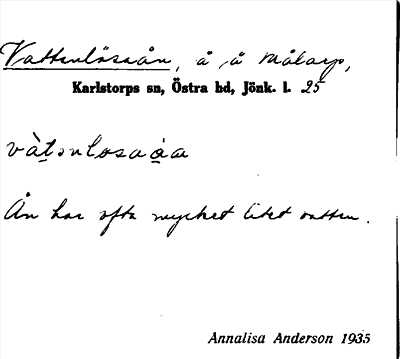 Vattenlösaån, å å Målarp,
Karlstorps sn, Östra hd, Jönk. l. 25
vàtənlosaåa
Ån har ofta mycket litet vatten.
Annalisa Anderson 1935